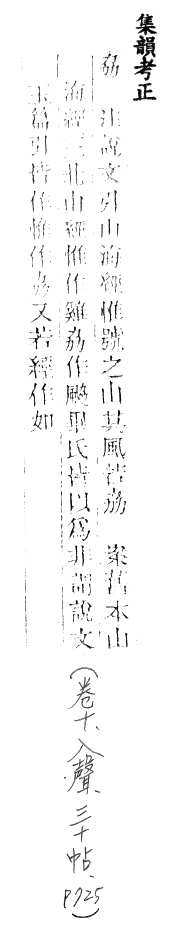 集韻考正
劦 注說文引山海經惟號之山其風若劦 案舊本山
海經三北山經惟作雞劦作飈畢氏皆以爲非謂說文
玉篇引皆作惟作劦又若經作如
(卷十、入聲、三十帖、P925)